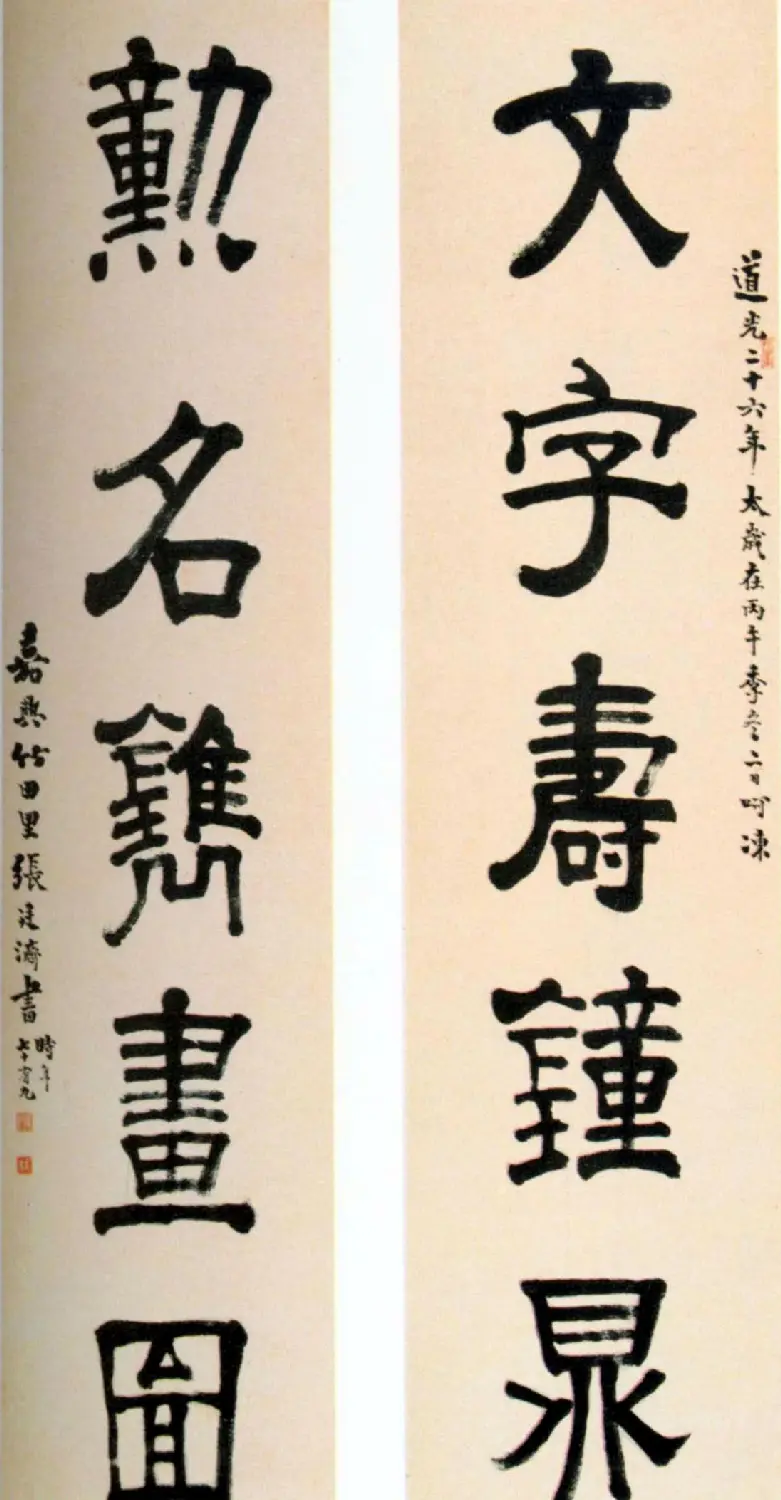 文字壽鐘鼎
道光二十六年太歲在丙午季冬二日呵凍
勳名鐫畫圖
嘉興竹田里張廷濟書時年七十有九